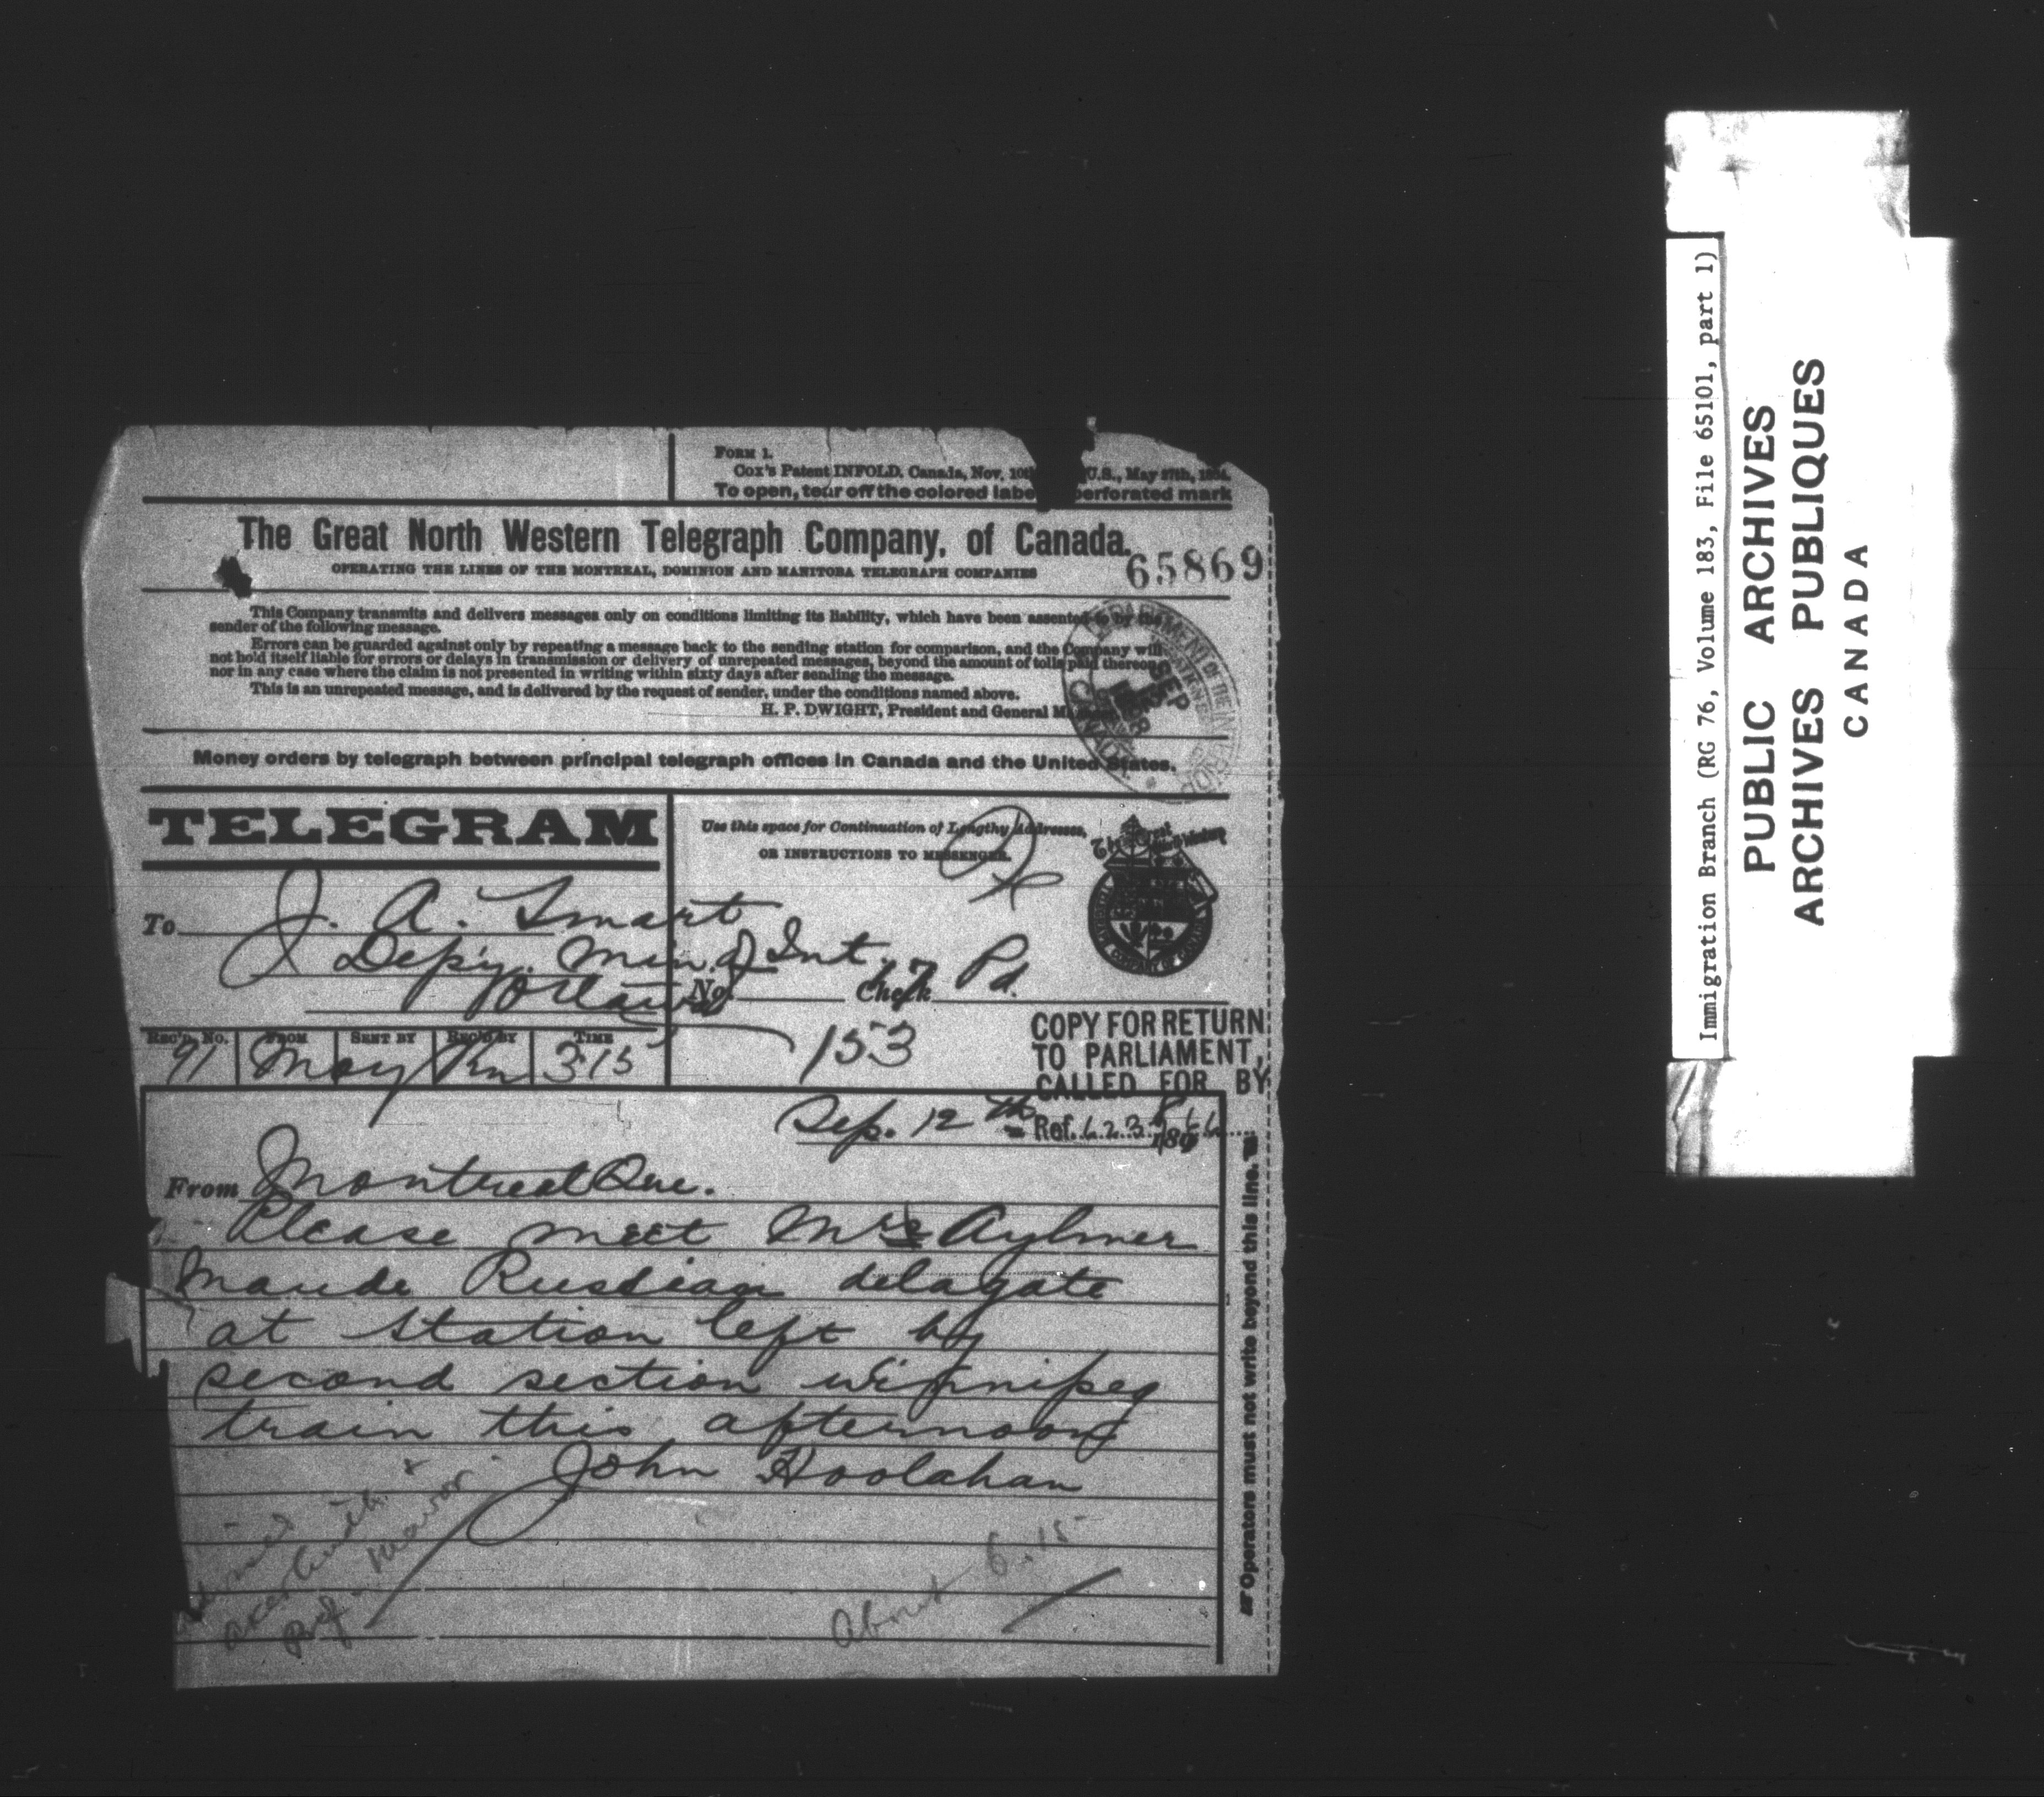 FORM 1.
Cox's Patent INFOLD. Canada, Nov. 10th U.S., May 27th,
To open, tear off the colored labe perforated mark
The Great North Western Telegraph Company, of Canada.
65869
OPERATING THE LINES OF THE MONTREAL, DOMINION AND MANITOBA TELEGRAPH COMPANIES
This Company transmits and delivers messages only on conditions limiting its liability, which have been assented to by the
sender of the following message.
Errors can be guarded against only by repeating a message back to the sending station for comparison, and the Company will
not hold itself liable for errors or delays in transmission or delivery of unrepeated messages, beyond the amount of tolls paid thereon,
nor in any case where the claim is not presented in writing within sixty days after sending the message.
This is an unrepeated message, and is delivered by the request of sender, under the conditions named above.
H. P. DWIGHT, President and General M
DEPARTMENT OF THE INTERIOR
SEP
CANADA
Money orders by telegraph between principal telegraph offices in Canada and the United States.
TELEGRAM
Use this space for Continuation of Lengthy Addresses,
OR INSTRUCTIONS TO MESSENGER.
To J. A. Smart
Dep'y. Min. of Int.
Ottawa
No. Check Pd.
153
REC'D. NO. FROM SENT BY REC'D BY TIME
91 May Kn 315
COPY FOR RETURN
TO PARLIAMENT,
CALLED FOR BY
Ref.
Sep. 12th 189
From Montreal Que.
Please meet Mrs Aylmer
Maude Russian delagate
at station left by
second section winnipeg
train this afternoon
John Hoolahan
Prof. Mavor
About 6.15
Operators must not write beyond this line.
Immigration Branch (RG 76, Volume 183, File 65101, part 1)
PUBLIC ARCHIVES
ARCHIVES PUBLIQUES
CANADA